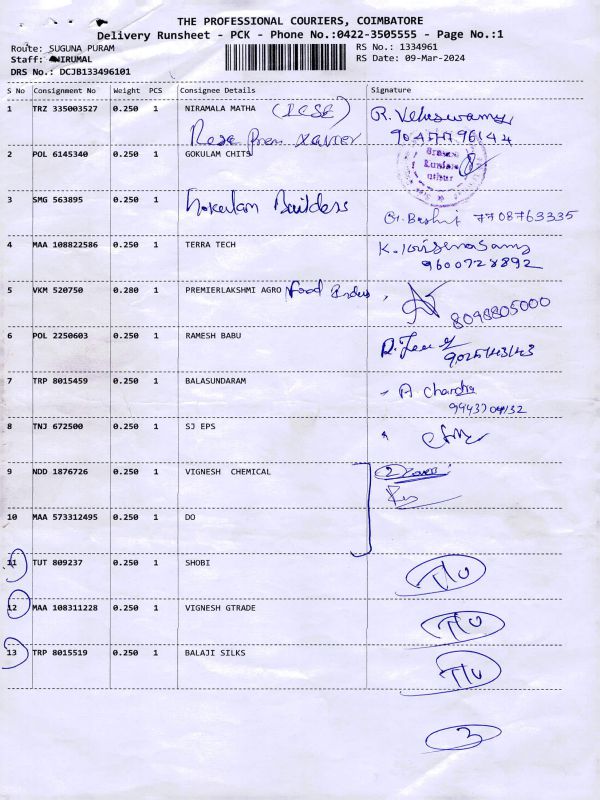 THE PROFESSIONAL COURIERS, COIMBATORE
Delivery Runsheet - PCK - Phone No.:0422-3505555 - Page No.:1
Route: SUGUNA PURAM RS No.: 1334961
Staff: NIRUMAL RS Date: 09-Mar-2024
DRS No.: DCJB133496101
S No Consignment No Weight PCS Consignee Details Signature
1 TRZ 335003527 0.250 1 NIRAMALA MATHA (ICSE)
Rose Prem Xavier
2 POL 6145340 0.250 1 GOKULAM CHITS
3 SMG 563895 0.250 1 Gokulam Builders
7708763335
4 MAA 108822586 0.250 1 TERRA TECH
9600728892
5 VKM 520750 0.280 1 PREMIERLAKSHMI AGRO Food
8098805000
6 POL 2250603 0.250 1 RAMESH BABU
7 TRP 8015459 0.250 1 BALASUNDARAM A Chandra
8 TNJ 672500 0.250 1 SJ EPS
9 NDD 1876726 0.250 1 VIGNESH CHEMICAL 2
10 MAA 573312495 0.250 1 DO
11 TUT 809237 0.250 1 SHOBI
12 MAA 108311228 0.250 1 VIGNESH GTRADE
13 TRP 8015519 0.250 1 BALAJI SILKS
3